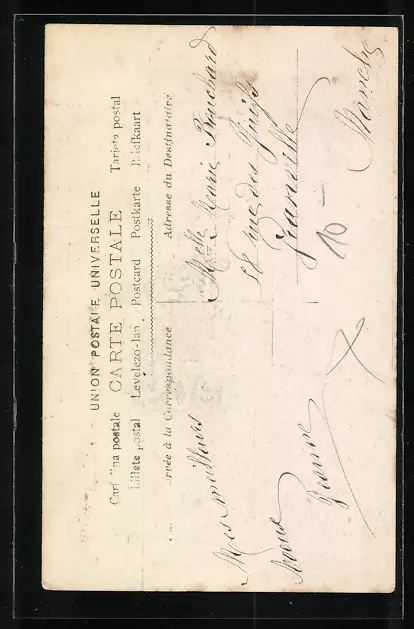 UNION POSTALE UNIVERSELLE
CARTE POSTALE
Tarjeta postal
na postale
Levelezo-lap Postcard Postkarte Briefkaart
Billete postal
rvée à la Correspondance
Adresse du Destinataire
Mes meilleurs
vœux
Jeanne
Melle Marie Bouchard
rue des Juifs
Granville
Manche
10 -